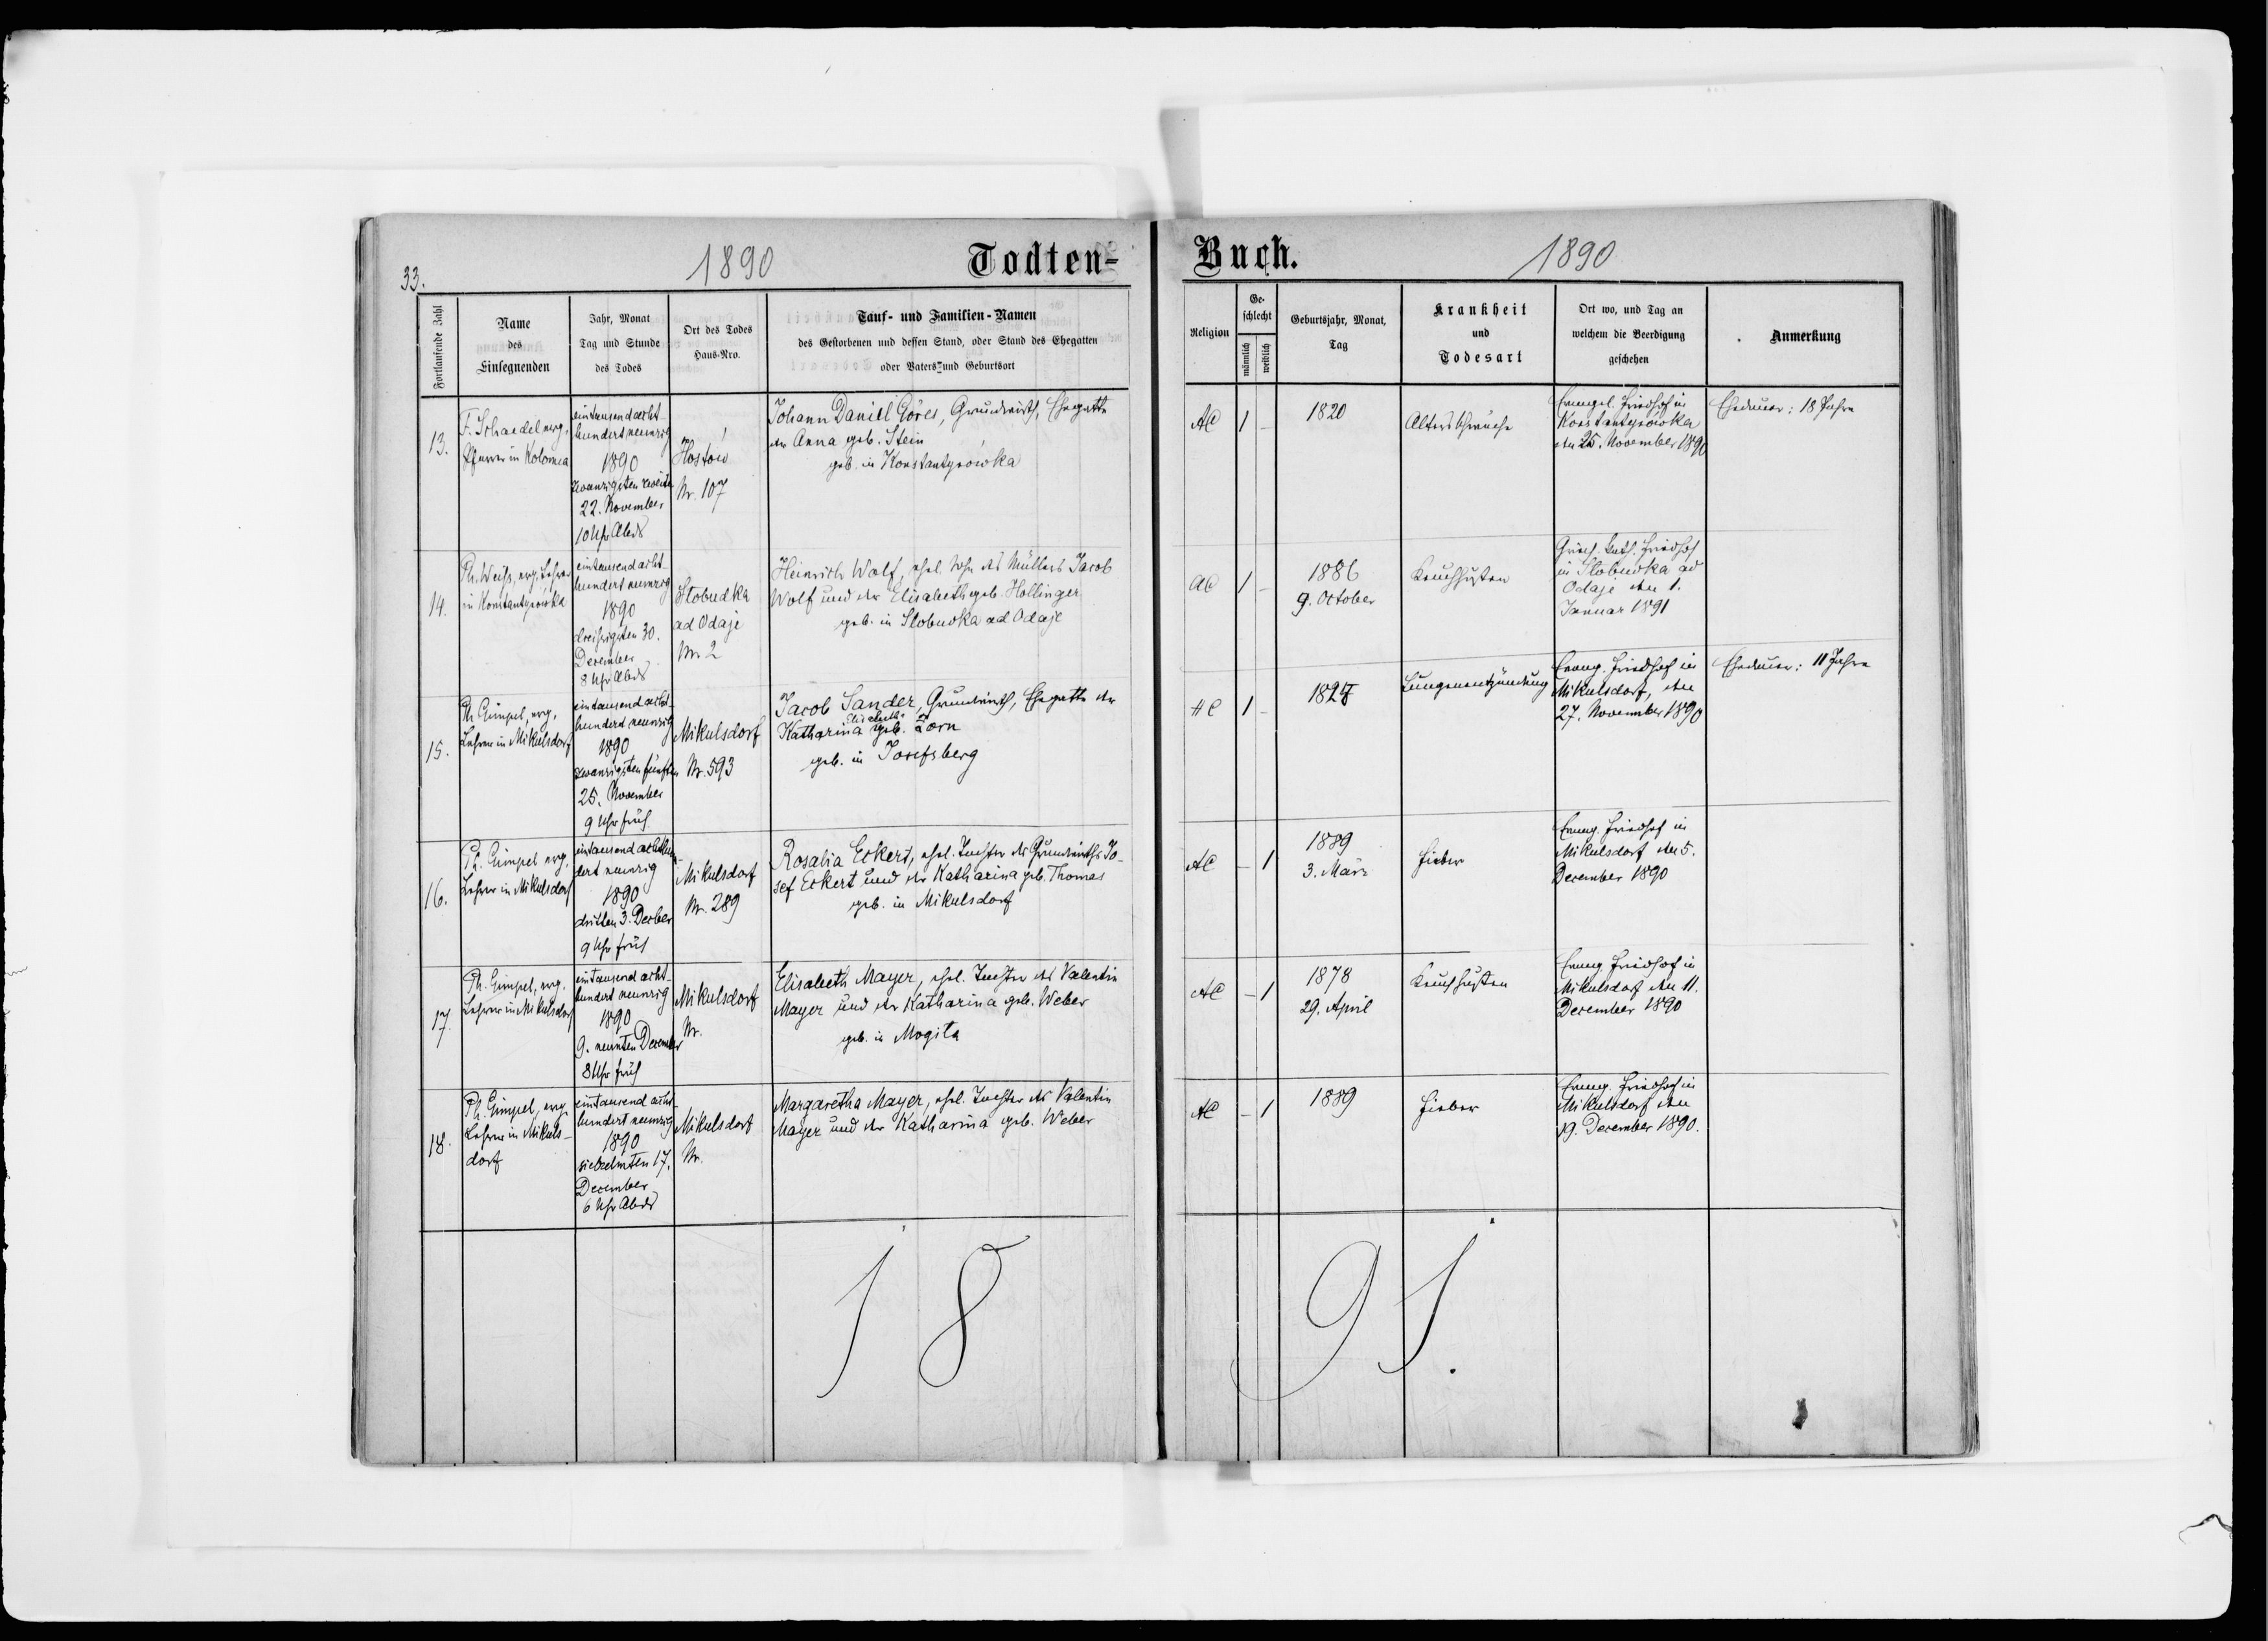 33.
1890
Todten-
Buch.
1890
Fortlaufende Zahl
Name
des
Einsegnenden
Jahr, Monat
Tag und Stunde
des Todes
Ort des Todes
Haus-Nro.
Tauf- und Familien-Namen
des Gestorbenen und dessen Stand, oder Stand des Ehegatten
oder Vaters und Geburtsort
Religion
Ge-
schlecht
männlich
weiblich
Geburtsjahr, Monat,
Tag
Krankheit
und
Todesart
Ort wo, und Tag an
welchem die Beerdigung
geschehen
Anmerkung
13.
F. Schaedel evg.
Pfarrer in Kolomea
eintausendacht-
hundert neunzig
1890
zwanzigsten zweiten
22. November
10 Uhr Abds
Hostów
Nr. 107
Johann Daniel Göres, Grundwirth, Ehegatte
der Anna geb. Stein
geb. in Konstantynówka
AC
1
-
1820
Altersschwäche
Evangel. Friedhof in
Konstantynówka
den 25. November 1890
Ehedauer: 18 Jahre
14.
Ph. Weiss, evg. Lehrer
in Konstantynówka
eintausend acht-
hundert neunzig
1890
dreissigsten 30.
December
8 Uhr Abds
Slobudka
ad Odaje
Nr. 2
Heinrich Wolf, ehel. Sohn des Müllers Jacob
Wolf und der Elisabeth geb. Hollinger
geb. in Slobudka ad Odaje
AC
1
-
1886
9. October
Keuchhusten
Griech. kath. Friedhof
in Slobudka ad
Odaje den 1.
Januar 1891
15.
Ph. Gimpel, evg.
Lehrer in Mikulsdorf
eintausend acht-
hundert neunzig
1890
zwanzigsten fünften
25. November
9 Uhr früh
Mikulsdorf
Nr. 593
Jacob Sander, Grundwirth, Ehegatte der
Elisabetha
Katharina geb. Zorn
geb. in Josefsberg
HC
1
-
Lungenentzündung
Evang. Friedhof in
Mikulsdorf, den
27. November 1890
Ehedauer: 11 Jahre
16.
Ph. Gimpel evg.
Lehrer in Mikulsdorf
eintausend achthun-
dert neunzig
1890
dritten 3. Decber
9 Uhr früh
Mikulsdorf
Nr. 289
Rosalia Eckert, ehel. Tochter des Grundwirths Jo-
sef Eckert und der Katharina geb. Thomas
geb. in Mikulsdorf
AC
-
1
1889
3. März
Fieber
Evang. Friedhof in
Mikulsdorf den 5.
December 1890
17.
Ph. Gimpel, evg.
Lehrer in Mikulsdorf
eintausend acht-
hundert neunzig
1890
9. neunten December
8 Uhr früh
Mikulsdorf
Nr.
Elisabeth Mayer, ehel. Tochter des Valentin
Mayer und der Katharina geb. Weber
geb. in Mogila
AC
-
1
1878
29. April
Keuchhusten
Evang. Friedhof in
Mikulsdorf den 11.
December 1890
18.
Ph. Gimpel, evg.
Lehrer in Mikuls-
dorf
eintausend acht-
hundert neunzig
1890
siebzehnten 17.
December
6 Uhr Abds
Mikulsdorf
Nr.
Margaretha Mayer, ehel. Tochter des Valentin
Mayer und der Katharina geb. Weber
AC
-
1
1889
Fieber
Evang. Friedhof in
Mikulsdorf den
19. December 1890.
18
91.